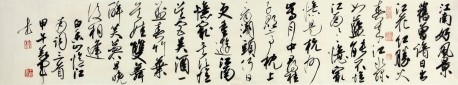 江南好風景
舊曾諳日出
江花紅勝火
春來江水緑
如藍能不憶
江南江南憶
最憶是杭州
山寺月中尋桂
子郡亭枕上
看潮頭何日
更重遊江南
憶其次憶吳
宮吳酒一杯
春竹葉
吳娃雙舞
醉芙蓉早晚
復相逢
白居易憶江
南詞三首
甲午